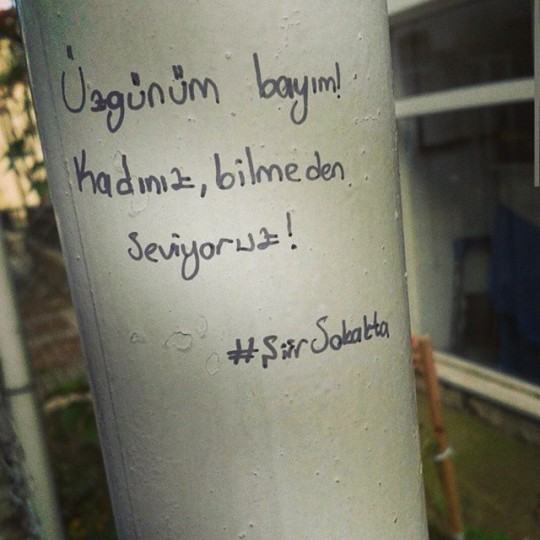 Üzgünüm bayım!
Kadınız, bilmeden
seviyoruz!
#ŞiirSokakta